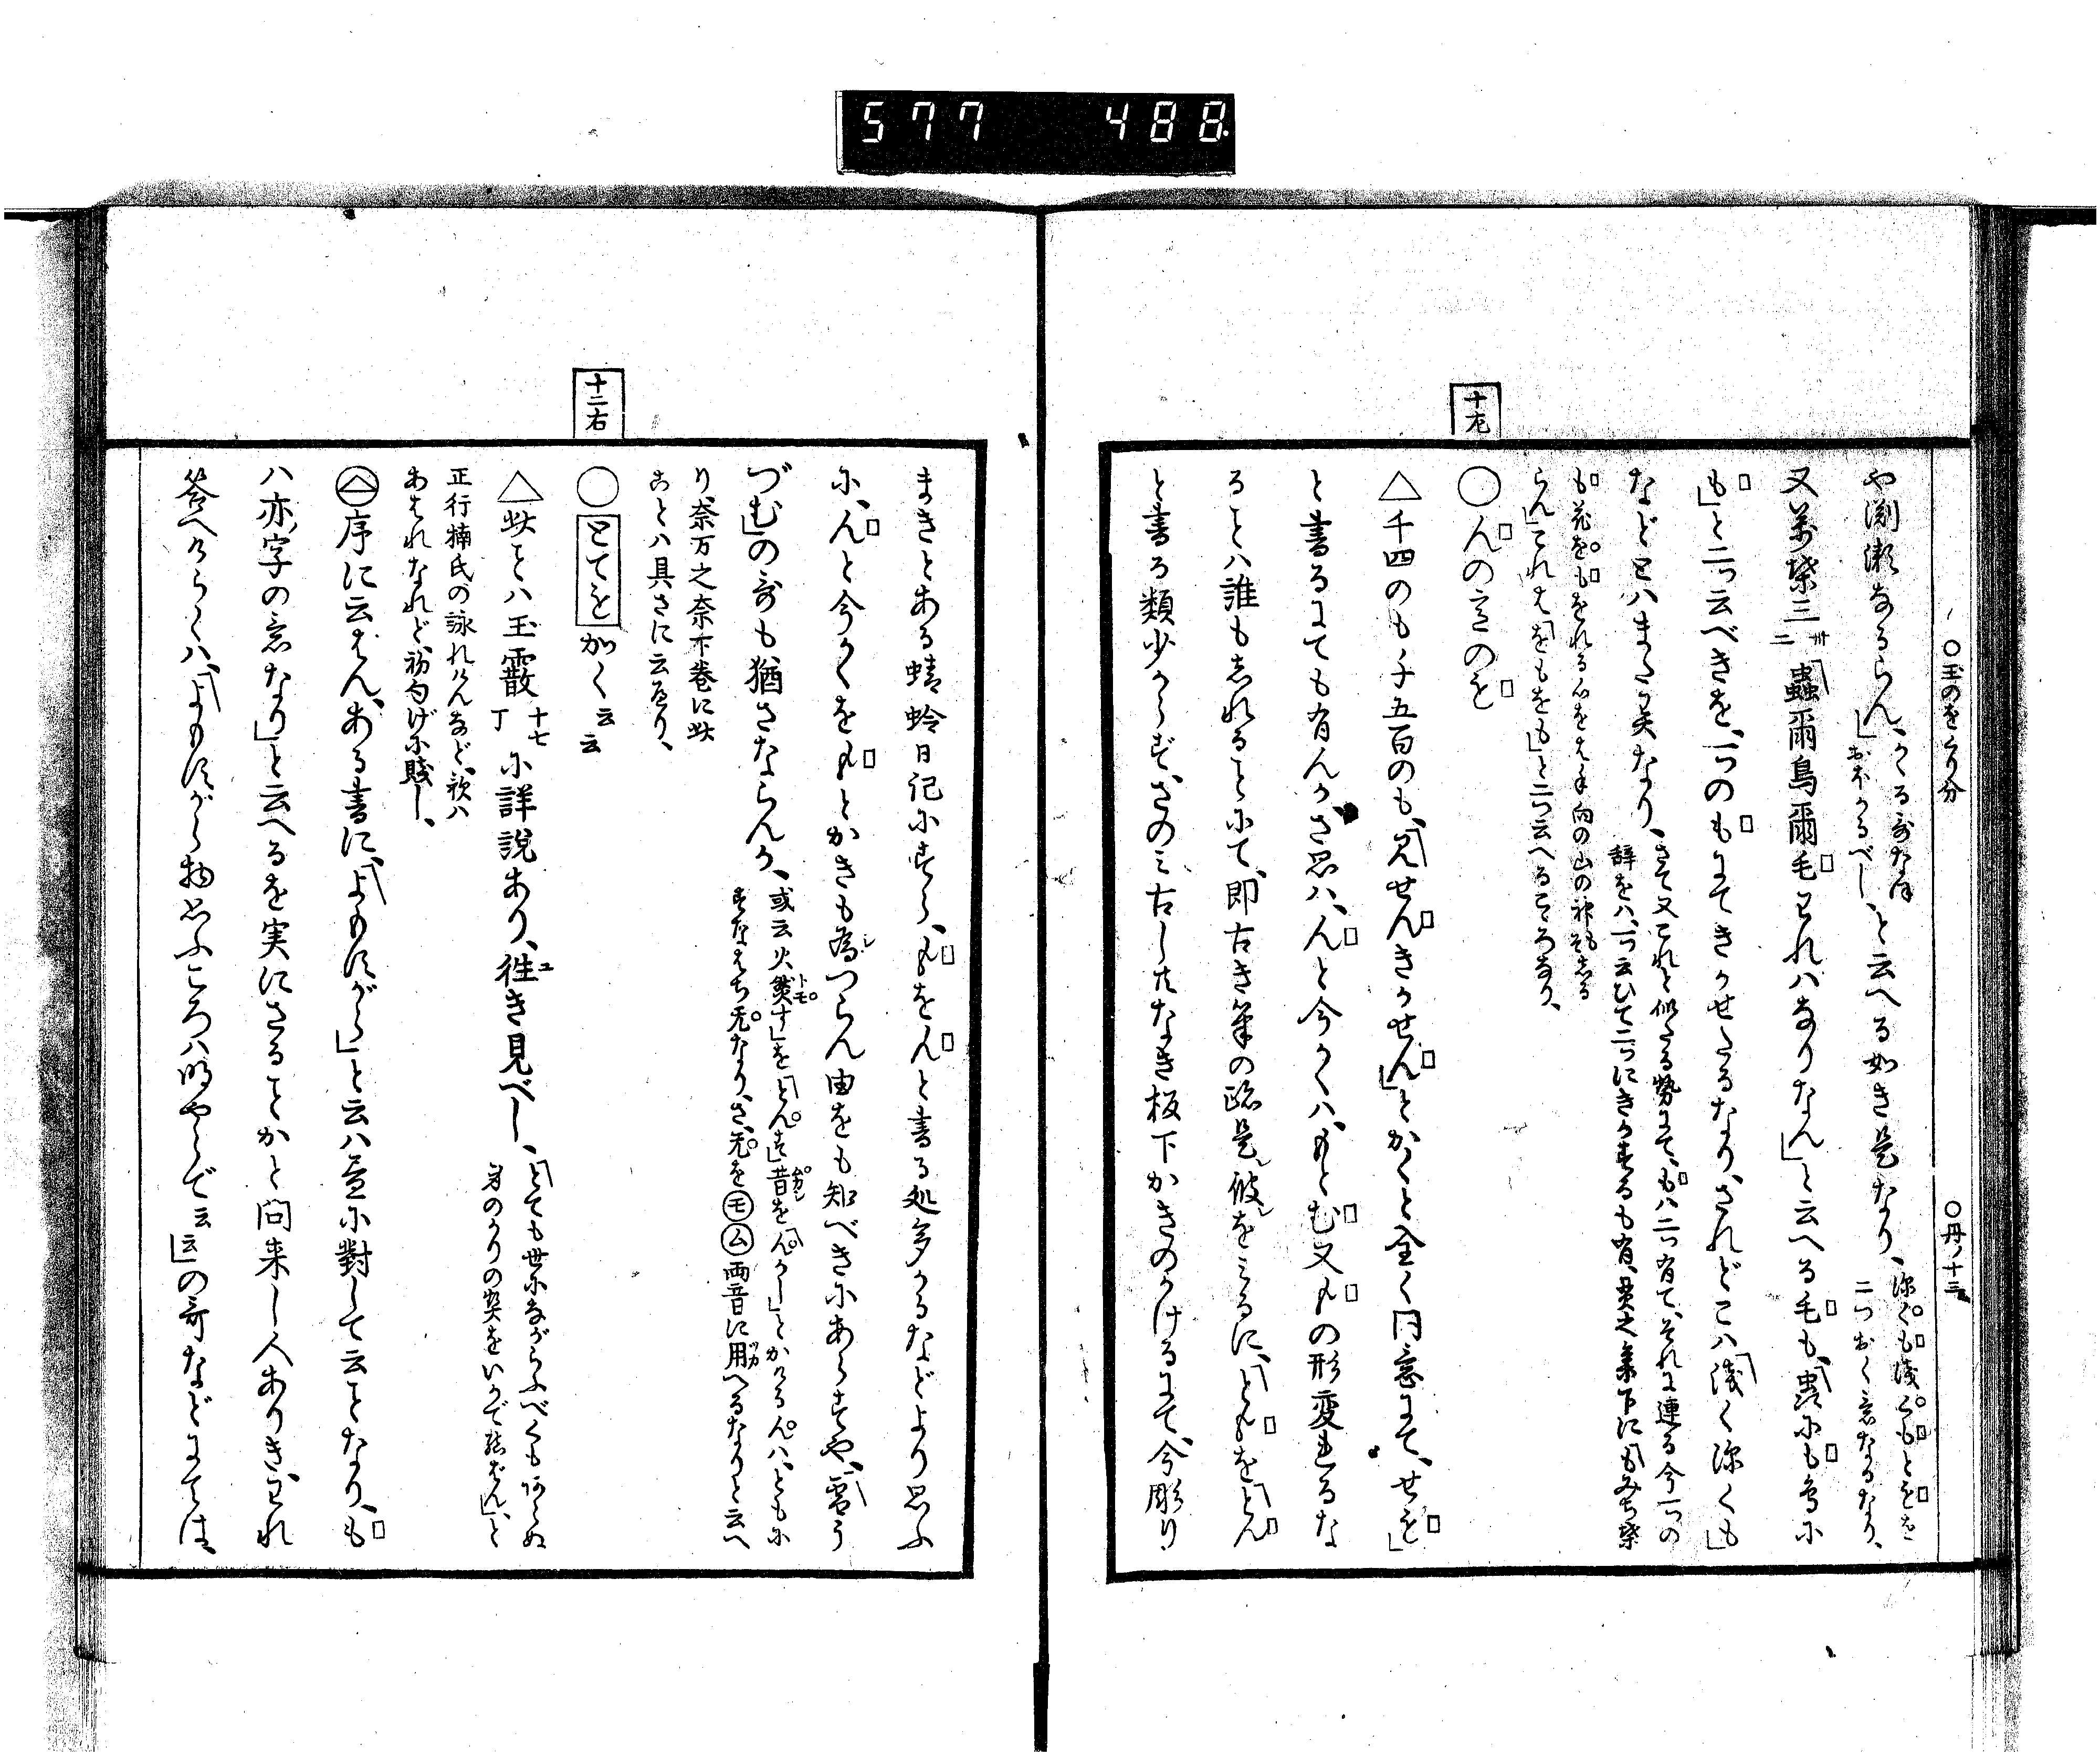 577 488
○玉のをくり分 ○丹ノ十三
や渕瀬なるらん」かゝる哥なほ
おほかるべし、と云へる如き是なり、深くも浅くもとをを
二つおく意なるなり、
又万葉三 卅二 「蟲爾鳥爾毛われハなりなん」と云へる毛も、「虫にも鳥に
も」と二つ云べきを、一つのもにてきかせたるなり、されどこハ「浅く深くも」
などとハまた異なり、さて又これと似たる勢にて、もハ二つ有て、それに連る今一つの
辞をハ、一つ云ひて二つにきかする有、貫之集下に「もみち葉
も花をもをれる心をは手向の山の神もしる
らん」これは「をもをも」と二つ云へるこゝろなり、
十左
○んの意のを
△千四のも千五百のも、「見せんきかせん」とかくと全く同意にて、せを」
と書るにても有んか、さ思ハ、んと今かくハ、もとむ又もの形変れるな
ることハ誰もしれることにて、即古き筆の跡是彼をみるに、「ともを「とん
と書る類少からず、さのミ古したなき板下かきのかけるにて、今彫り
まきとある蜻蛉日記にすら、もをんと書る処多かるなどより思ふ
に、んと今かくをもとかきも為つらん由をも知べきにあらずや、「雪う
づむ」の哥も猶さならんか、或云火焚す」を「とんす」昔を「んかし」とかけるんハ、ともに
すなはち无なり、さ、无をモム両音に用へるなりと云へ
り、奈万之奈木巻に此
ことハ具さに云るり、
十二右
○とてを かく云云
△此ことハ玉霰 十七丁 に詳説あり、往き見べし、「とても世にながらふべくもあらぬ
身のかりの契をいかで結ばん」と
正行楠氏の詠れけんなど、歌ハ
あはれなれど、詞つげに賤し、
序に云はん、ある書に、「よもすがら」と云ハ昼に對して云ことなり、も
ハ亦ノ字の意なり」と云へるを実にさることかと問来し人ありき、われ
答へけらくハ、「よもすがら物思ふころハ明やらで云云」の哥などにては、